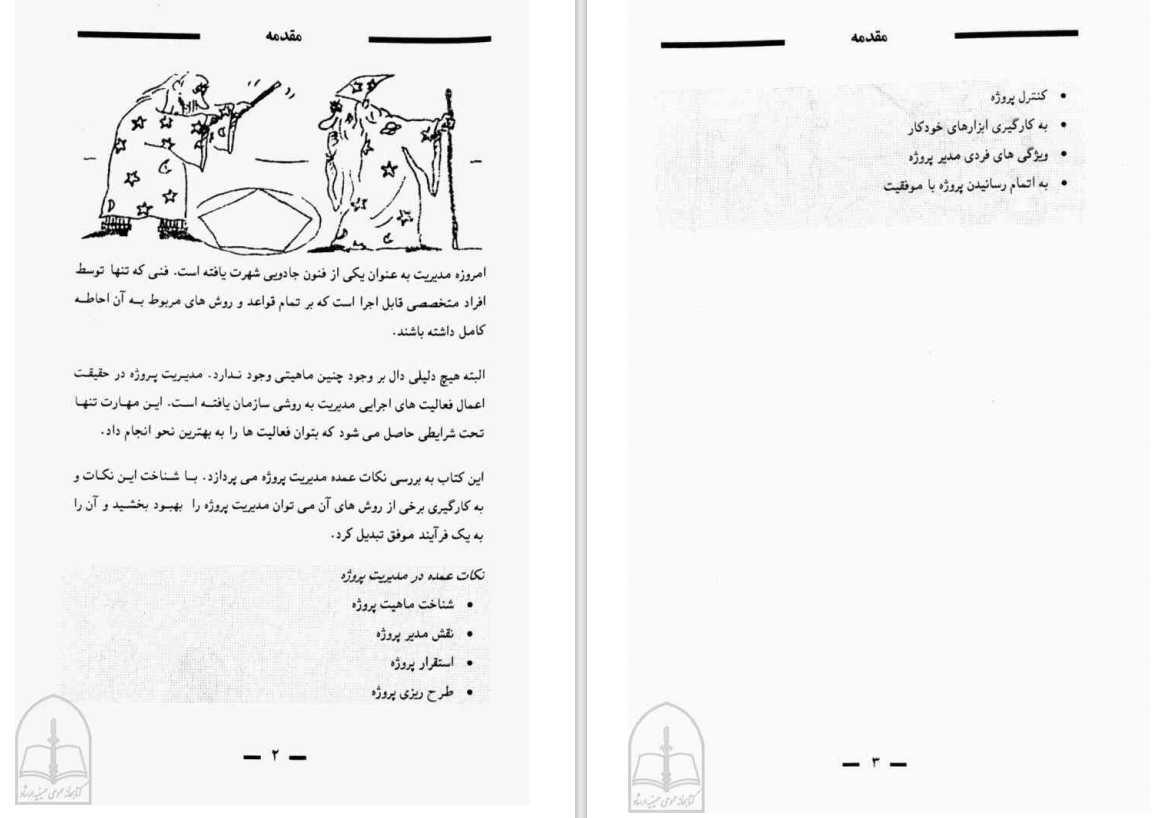 مقدمه
امروزه مدیریت به عنوان یکی از فنون جادویی شهرت یافته است. فنی که تنها توسط
افراد متخصصی قابل اجرا است که بر تمام قواعد و روش های مربوط بـه آن احاطـه
کامل داشته باشند.
البته هیچ دلیلی دال بر وجود چنین ماهیتی وجود نـدارد. مدیـریت پـروژه در حقیقت
اعمال فعالیت های اجرایی مدیریت به روشی سازمان یافتـه اسـت. ایـن مهـارت تنهـا
تحت شرایطی حاصل می شود که بتوان فعالیت ها را به بهترین نحو انجام داد.
این کتاب به بررسی نکات عمده مدیریت پروژه می پردازد. بـا شـناخت ایـن نکـات و
به کارگیری برخی از روش های آن می توان مدیریت پروژه را بهبـود بخشـید و آن را
به یک فرآیند موفق تبدیل کرد.
نکات عمده در مدیریت پروژه
• شناخت ماهیت پروژه
• نقش مدیر پروژه
• استقرار پروژه
• طرح ریزی پروژه
۲
کتابخانه عمومی حسینیه ارشاد
مقدمه
• کنترل پروژه
• به کارگیری ابزارهای خودکار
• ویژگی های فردی مدیر پروژه
• به اتمام رسانیدن پروژه با موفقیت
۳
کتابخانه عمومی حسینیه ارشاد